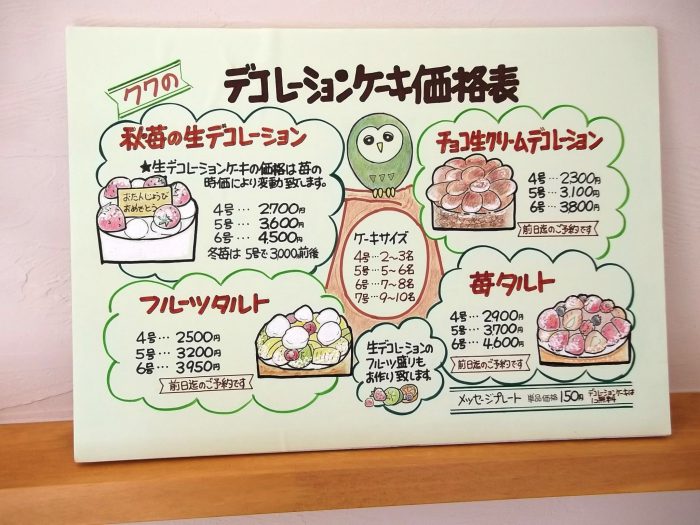 ククの
デコレーションケーキ価格表
秋苺の生デコレーション
★生デコレーションケーキの価格は苺の
時価により変動致します。
おたんじょうび
おめでとう
4号… 2,700円
5号… 3,600円
6号… 4,500円
冬苺は 5号で3,000円前後
チョコ生クリームデコレーション
4号… 2300円
5号… 3,100円
6号… 3,800円
前日迄のご予約です
ケーキサイズ
4号…2~3名
5号…5~6名
6号…7~8名
7号…9~10名
フルーツタルト
4号… 2500円
5号… 3200円
6号… 3950円
前日迄のご予約です
生デコレーションの
フルーツ盛りも
お作り致します。
苺タルト
4号…2900円
5号…3,700円
6号…4,600円
前日迄のご予約です
メッセージプレート 単品価格 150円 デコレーションケーキは